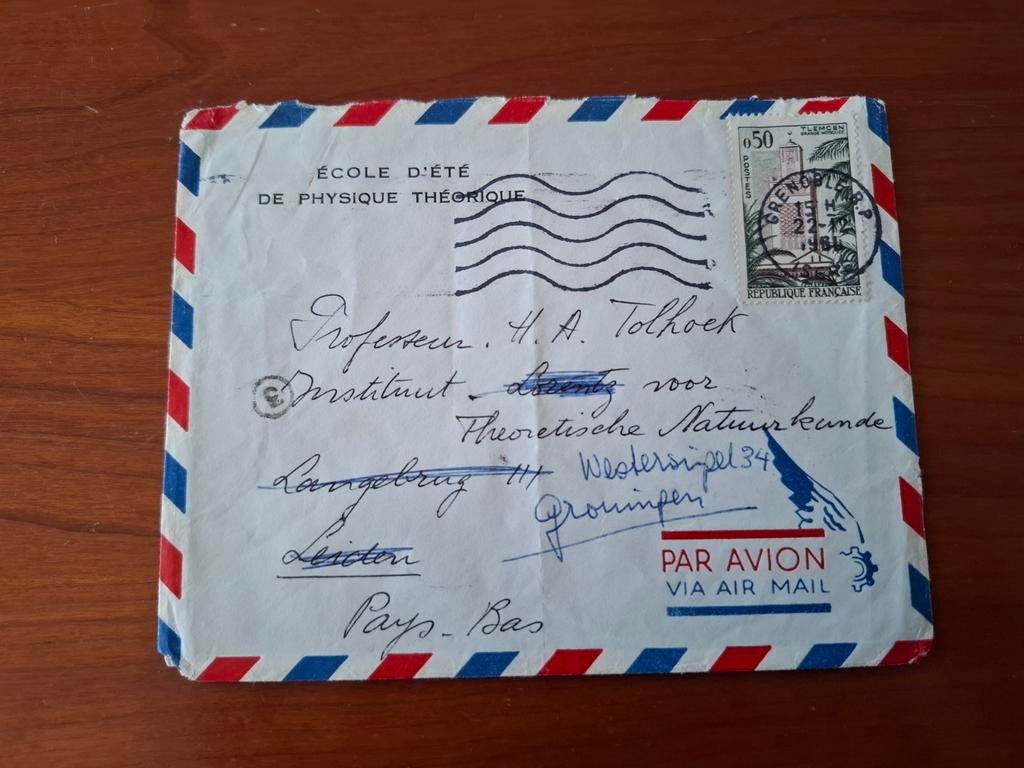 ÉCOLE D'ÉTÉ
DE PHYSIQUE THÉORIQUE
0,50
TLEMCEN
GRANDE MOSQUÉE
POSTES
RÉPUBLIQUE FRANÇAISE
GRENOBLE R.P
15 H
22-12
Professeur. H. A. Tolhoek
3
Instituut. Lorentz voor
Theoretische Natuurkunde
Langebrug 111
Westersingel 34
Groningen
Leiden
Pays-Bas
PAR AVION
VIA AIR MAIL